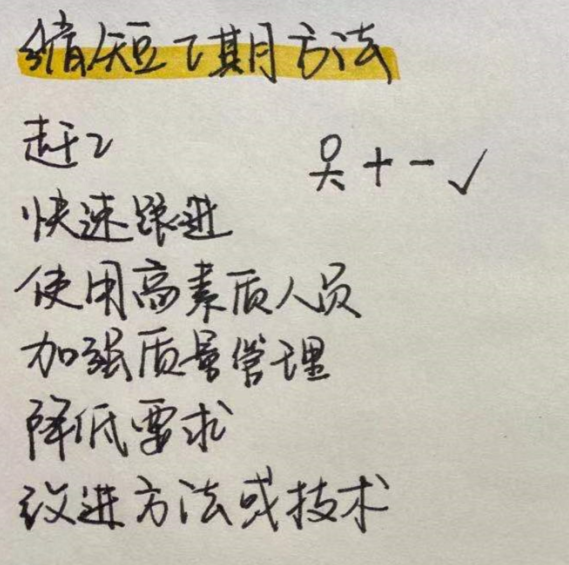 缩短工期方法
赶工
吴+-√
快速跟进
使用高素质人员
加强质量管理
降低需求
改进方法或技术